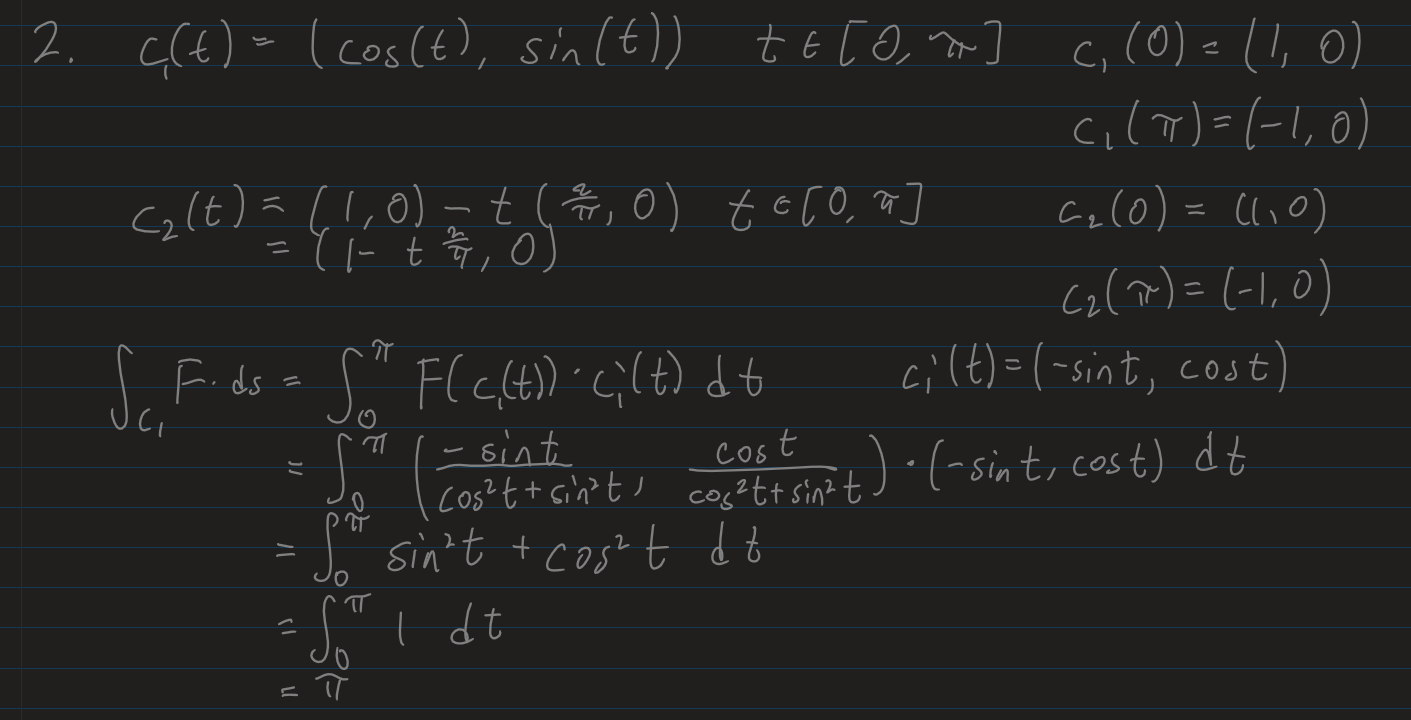 2. c₁(t) = (cos(t), sin(t)) t ∈ [0, π] c₁(0) = (1, 0)
c₁(π) = (-1, 0)
c₂(t) = (1, 0) - t (2/π, 0) t ∈ [0, π] c₂(0) = (1, 0)
= (1 - t 2/π, 0)
c₂(π) = (-1, 0)
∫_C₁ F · ds = ∫₀^π F(c₁(t)) · c₁'(t) dt c₁'(t) = (-sin t, cos t)
= ∫₀^π (-sin t / cos² t + sin² t, cos t / cos² t + sin² t) · (-sin t, cos t) dt
= ∫₀^π sin² t + cos² t dt
= ∫₀^π 1 dt
= π